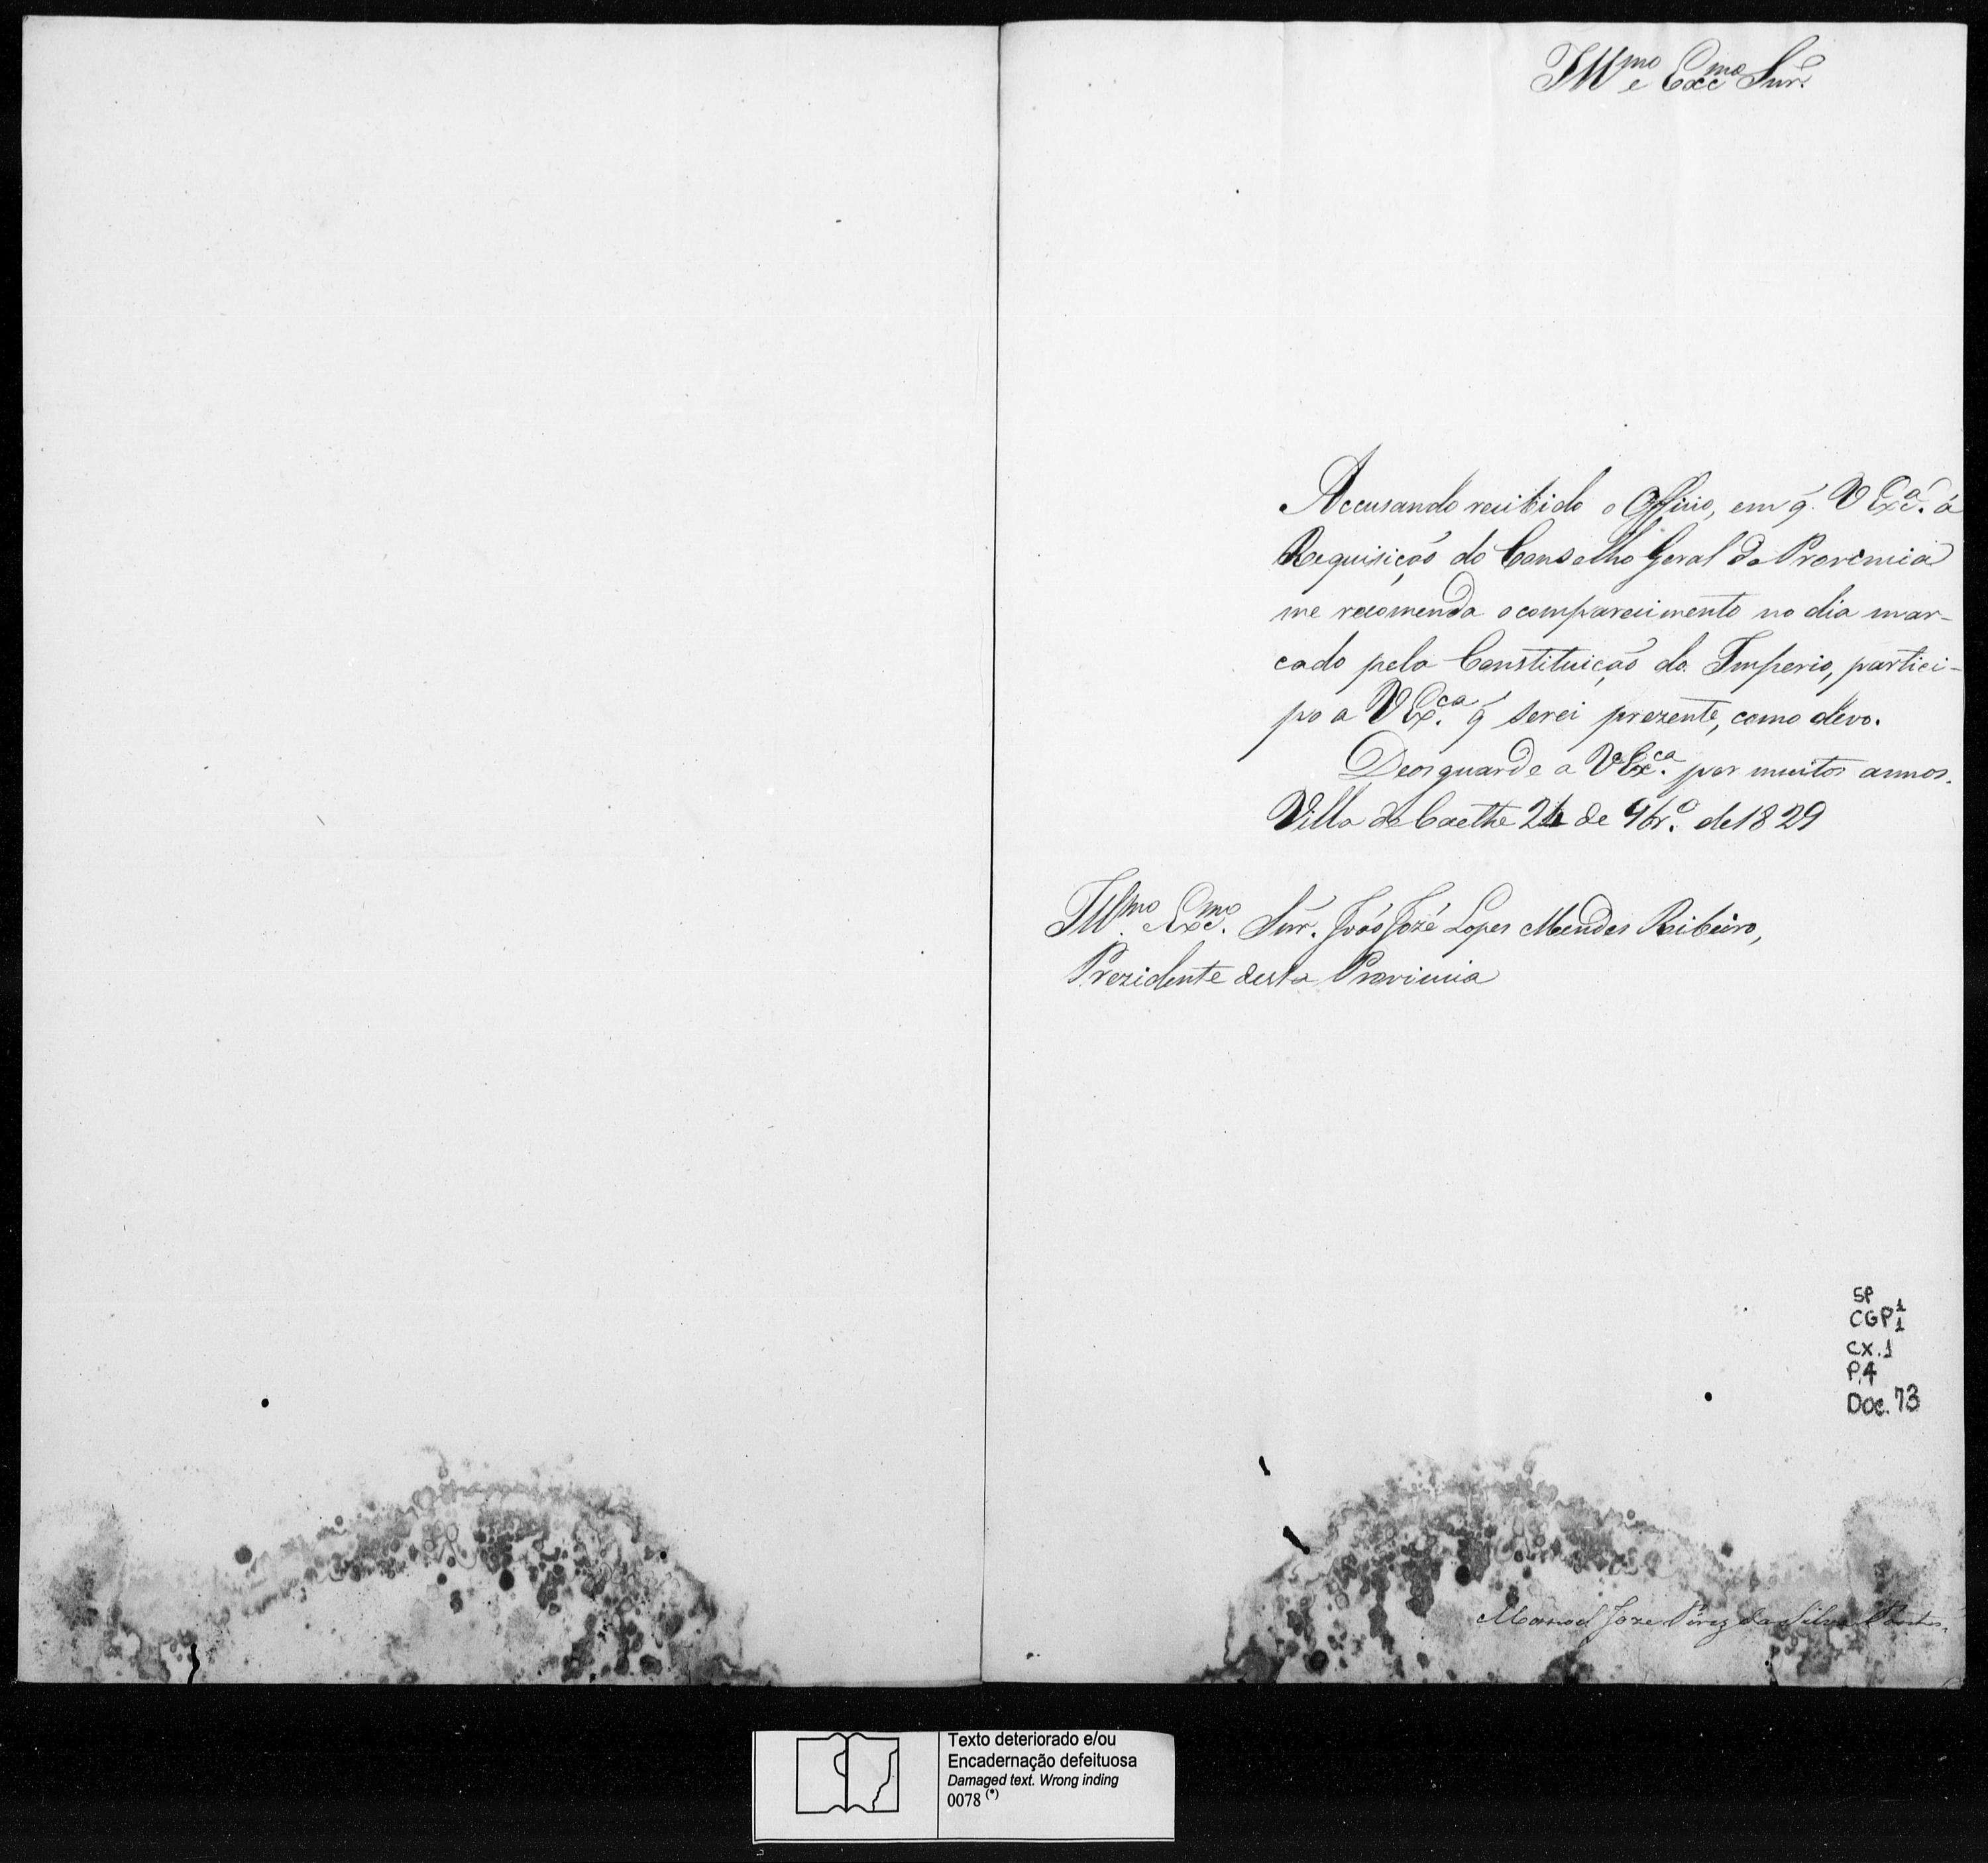 Ill.mo e Exc.mo Snr.
Accusando recebido o Officio, em q. V Exc.a á
Requisição do Conselho Geral da Provincia
me recomenda o comparecimento no dia mar-
cado pela Constituição do Imperio, partici-
po a V Ex.ca q serei prezente, como devo.
Deos guarde a V Ex.ca por muitos annos.
Villa do Caethe 24 de 9br.o de 1829
Ill.mo Exc.mo Snr. João Jozé Lopes Mendes Ribeiro,
Prezidente desta Provincia
SP
CGP 1/1
CX.1
P.4
Doc. 73
Manoel Joze Pirez da Silva Pontes.
Texto deteriorado e/ou
Encadernação defeituosa
Damaged text. Wrong inding
0078 (*)